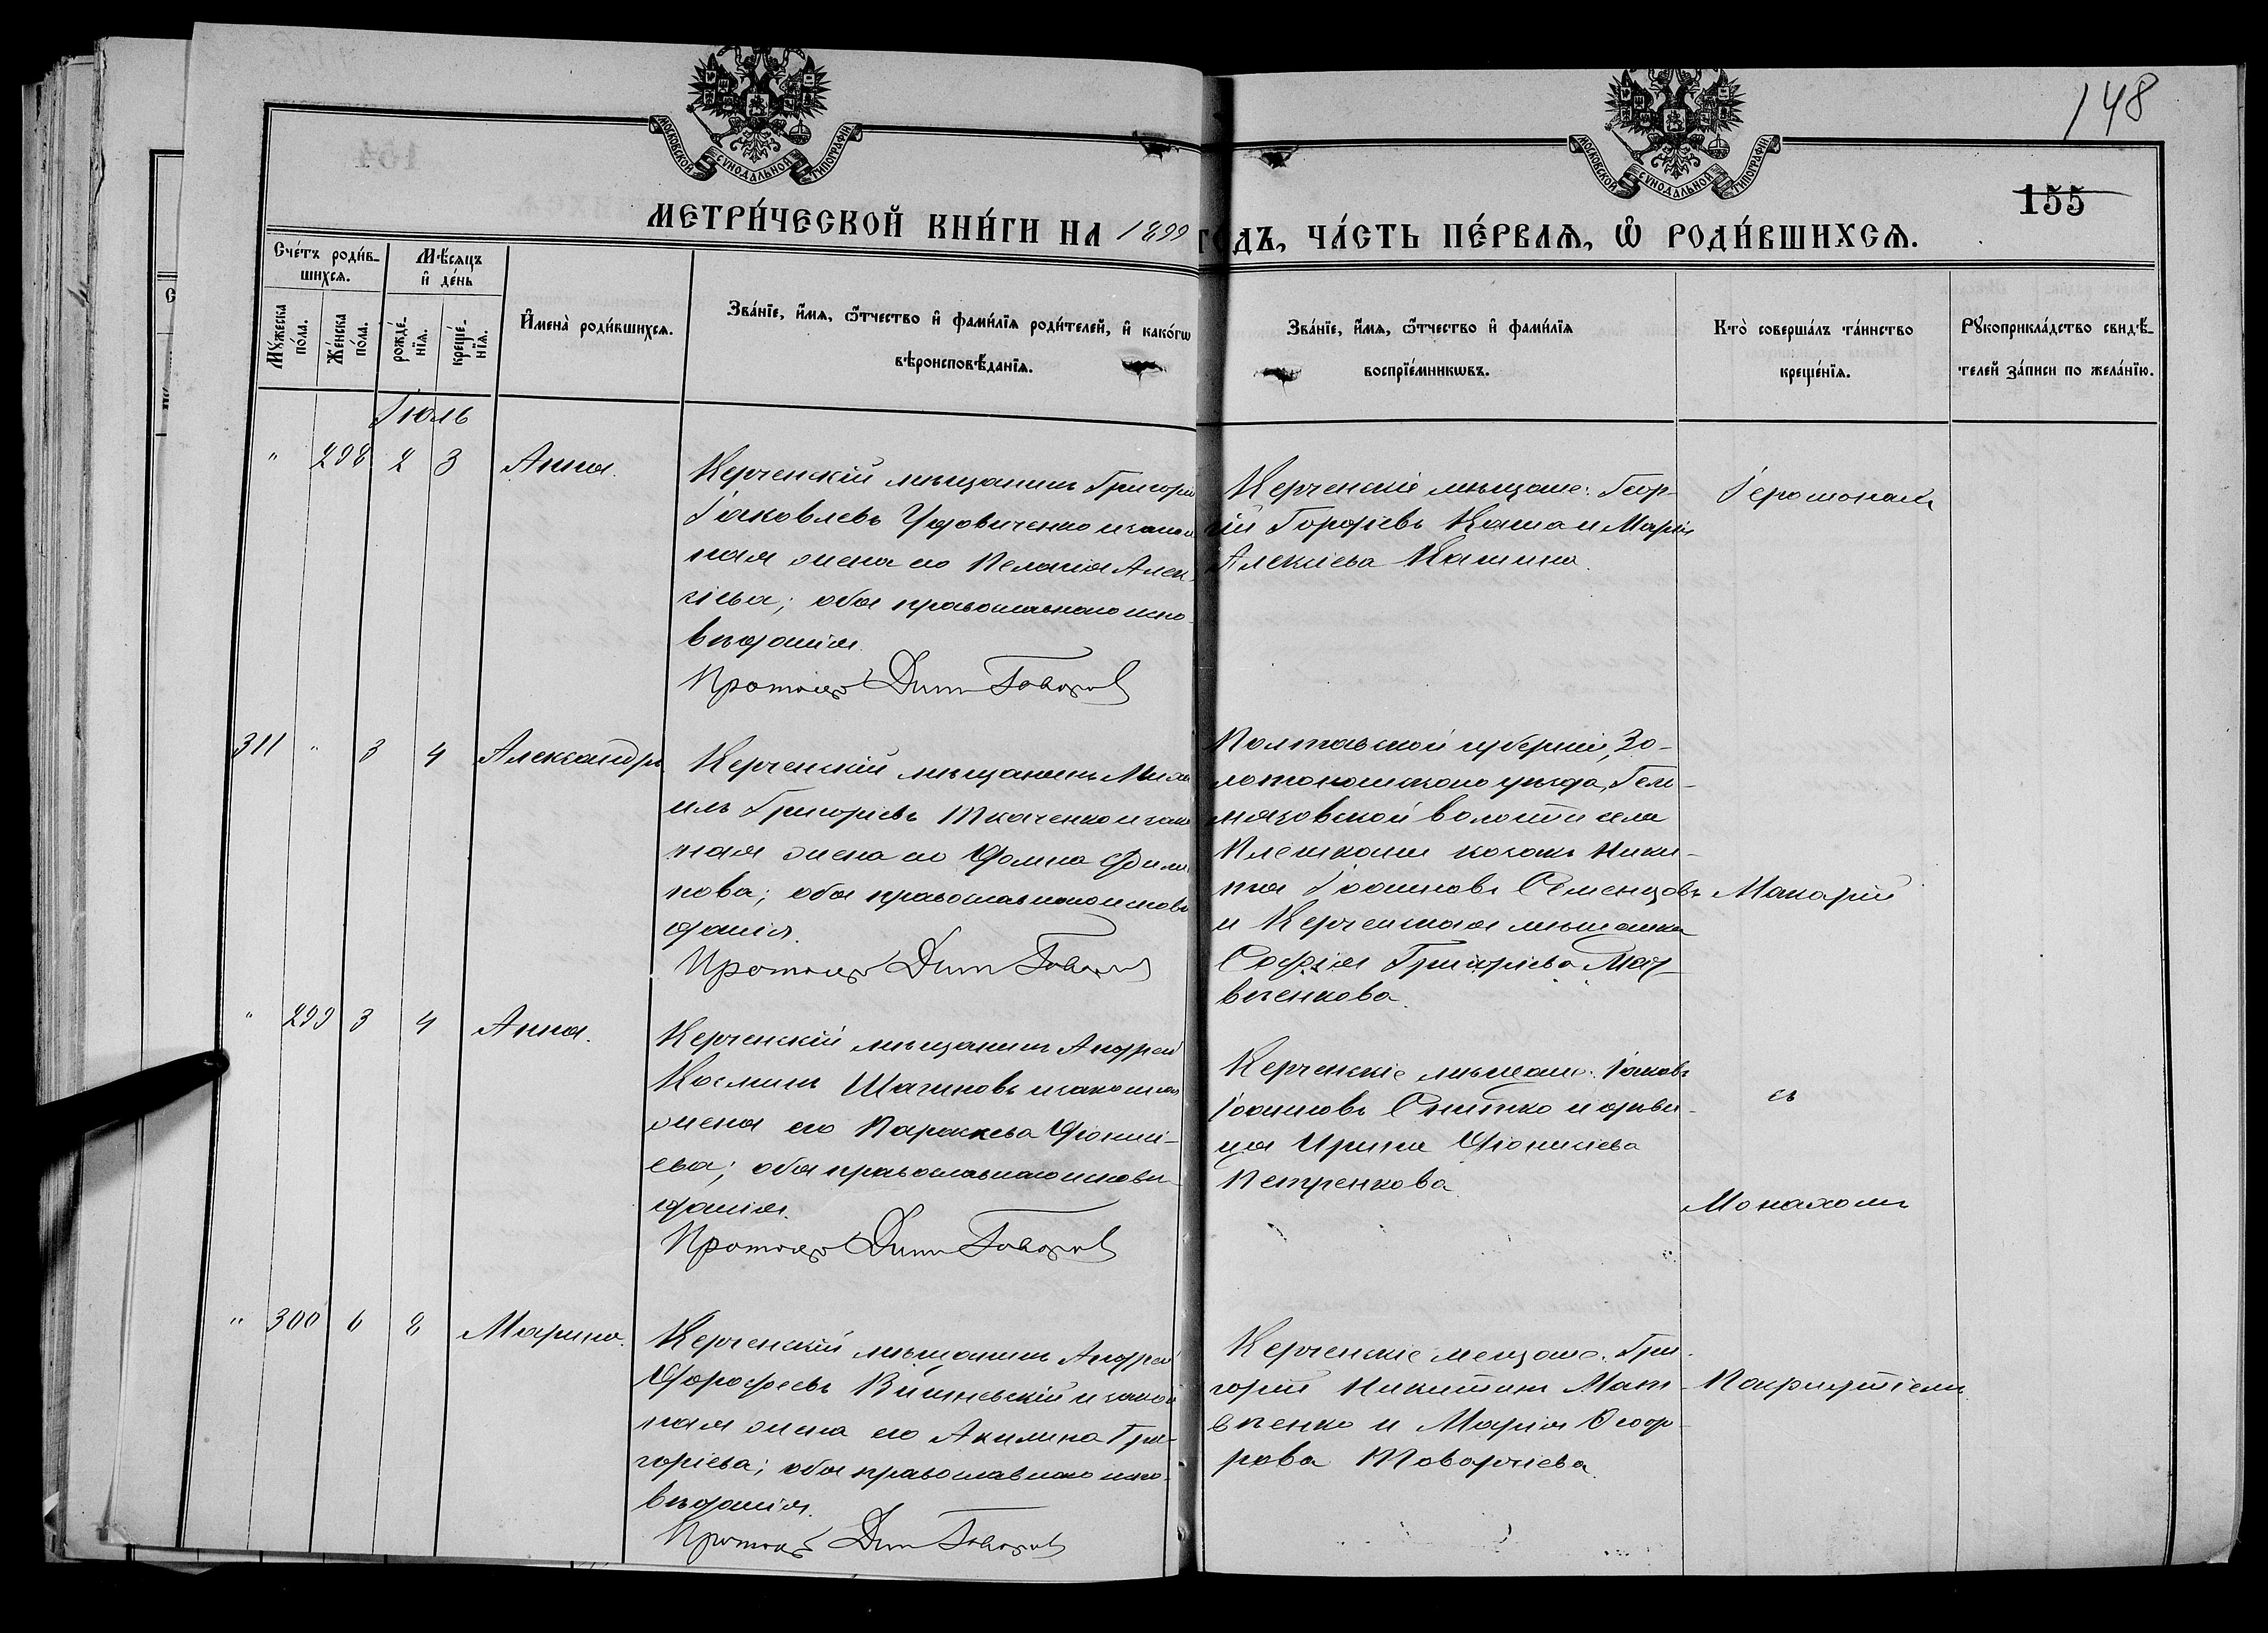 148
155
МОСКОВСКОЙ СѴНОДАЛЬНОЙ ТИПОГРАФІИ
МОСКОВСКОЙ СѴНОДАЛЬНОЙ ТИПОГРАФІИ
МЕТРИ́ЧЕСКОЙ КНИ́ГИ НА 1899 ГОДЪ, ЧА́СТЬ ПЕ́РВАѦ, Ѡ҆ РОДИ́ВШИХСѦ.
Сче́тъ роди́в-
шихсѧ.
Мѣ́сѧцъ
и҆ де́нь
Мꙋ́жеска по́ла.
Же́нска по́ла.
рожде́-нїѧ.
креще́-нїѧ.
И҆мена̀ роди́вшихсѧ.
Зва́нїе, и҆́мѧ, ѻ҆́тчество и҆ фами́лїѧ роди́телей, и҆ како́гѡ
вѣроисповѣ́данїѧ.
Зва́нїе, и҆́мѧ, ѻ҆́тчество и҆ фами́лїѧ
воспрїе́мникѡвъ.
Кто̀ соверша́лъ та́инство
креще́нїѧ.
Рꙋкоприкла́дство свидѣ́-
телей за́писи по жела́нїю.
Іюль
" 298 2 3 Анна.
Керченскій мѣщанинъ Григорій
Іаковлевъ Удовиченко и закон
ная жена его Пелагія Алек-
сіева; оба православнаго испо-
вѣданія.
Протоіер Дим Говоров
Керченскіе мѣщане: Геор-
гій Георгіевъ Каша и Марія
Алексіева Кашина.
Іеромонахъ
311 " 3 4 Александръ
Керченскій мѣщанинъ Миха
илъ Григоріевъ Ткаченко и закон
ная жена его Домна Филип
пова; оба православнаго исповѣ
данія.
Протоіер Дим Говоров
Полтавской губерніи, Зо-
лотоношскаго уѣзда, Гель-
мязовской волости села
Плешкани козакъ Ники-
та Іоанновъ Семенцовъ
и Керченская мѣщанка
Софія Григоріева Мат-
вѣенкова.
Макарій
" 299 3 4 Анна.
Керченскій мѣщанинъ Андрей
Косминъ Шагиновъ и законная
жена его Параскева Діонисі-
ева; оба православнаго исповѣ-
данія.
Протоіер Дим Говоров
Керченскіе мѣщане: Іаковъ
Іоанновъ Снитко и дѣви-
ца Ирина Діонисіева
Петренкова.
съ
Монахомъ
" 300 6 8 Марина.
Керченскій мѣщанинъ Андрей
Дорофеевъ Вишневскій и закон
ная жена его Акилина Гри-
горіева; оба православнаго испо-
вѣданія.
Протоіер Дим Говоров
Керченскіе мещане: Гри-
горій Никитинъ Мат-
вѣенко и Марія Ѳеодо-
рова